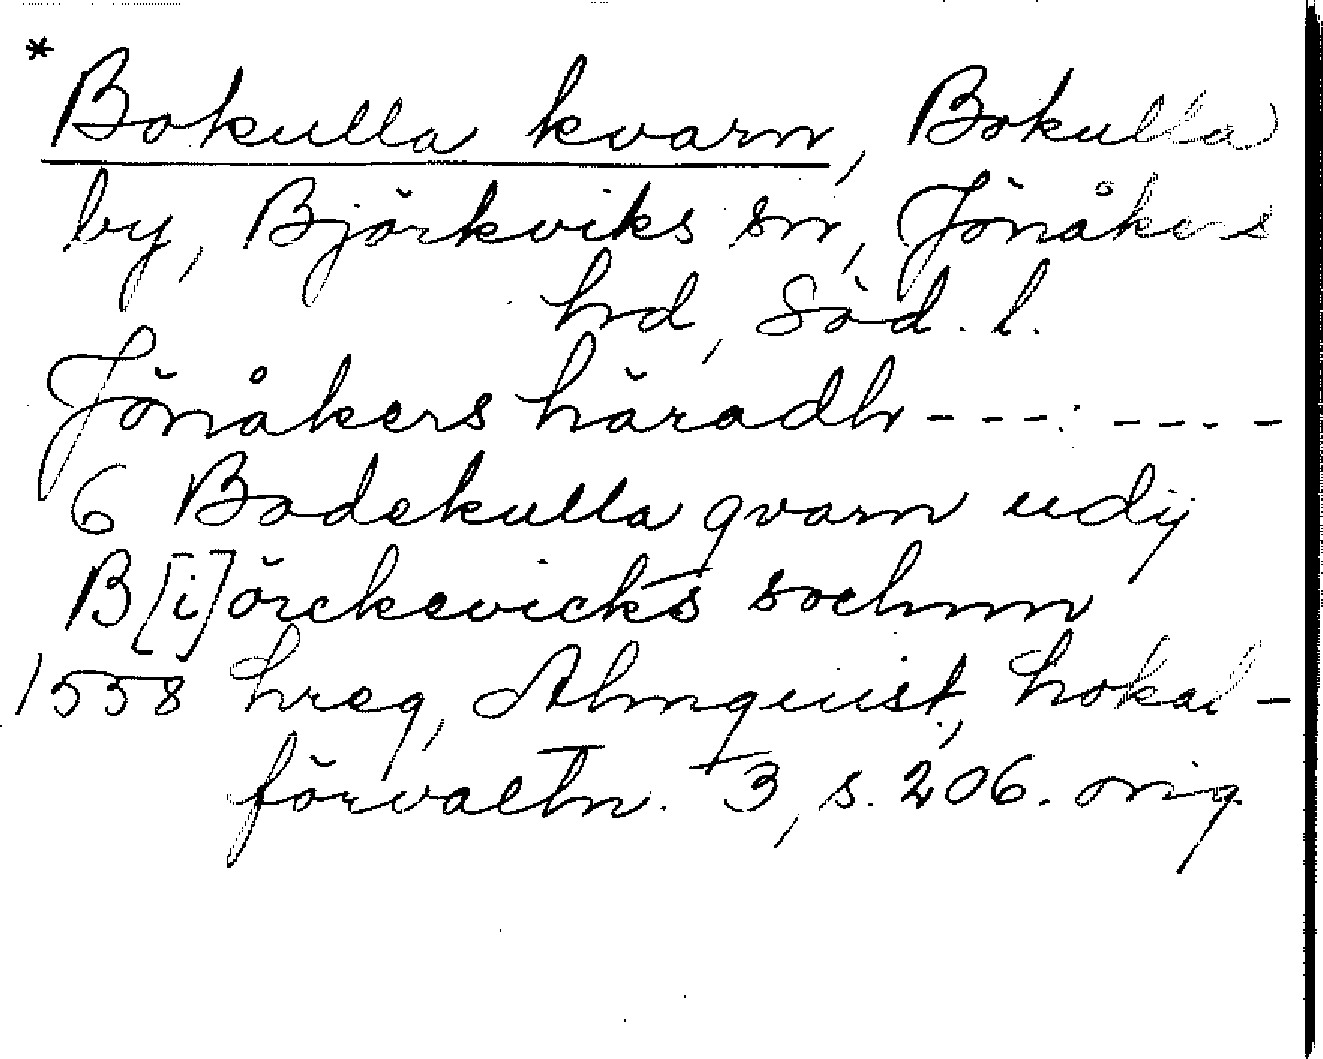 *
Bokulla kvarn, Bokulla
by, Björkviks sn, Jönåkers
hd, Söd. l.
Jönåkers häradh - - - : - - - -
6 Bodekulla qvarn udij
B[i]örckevicks sochnn
1558 hreg, Almquist, Lokal-
förvaltn. 3, s. 206. orig